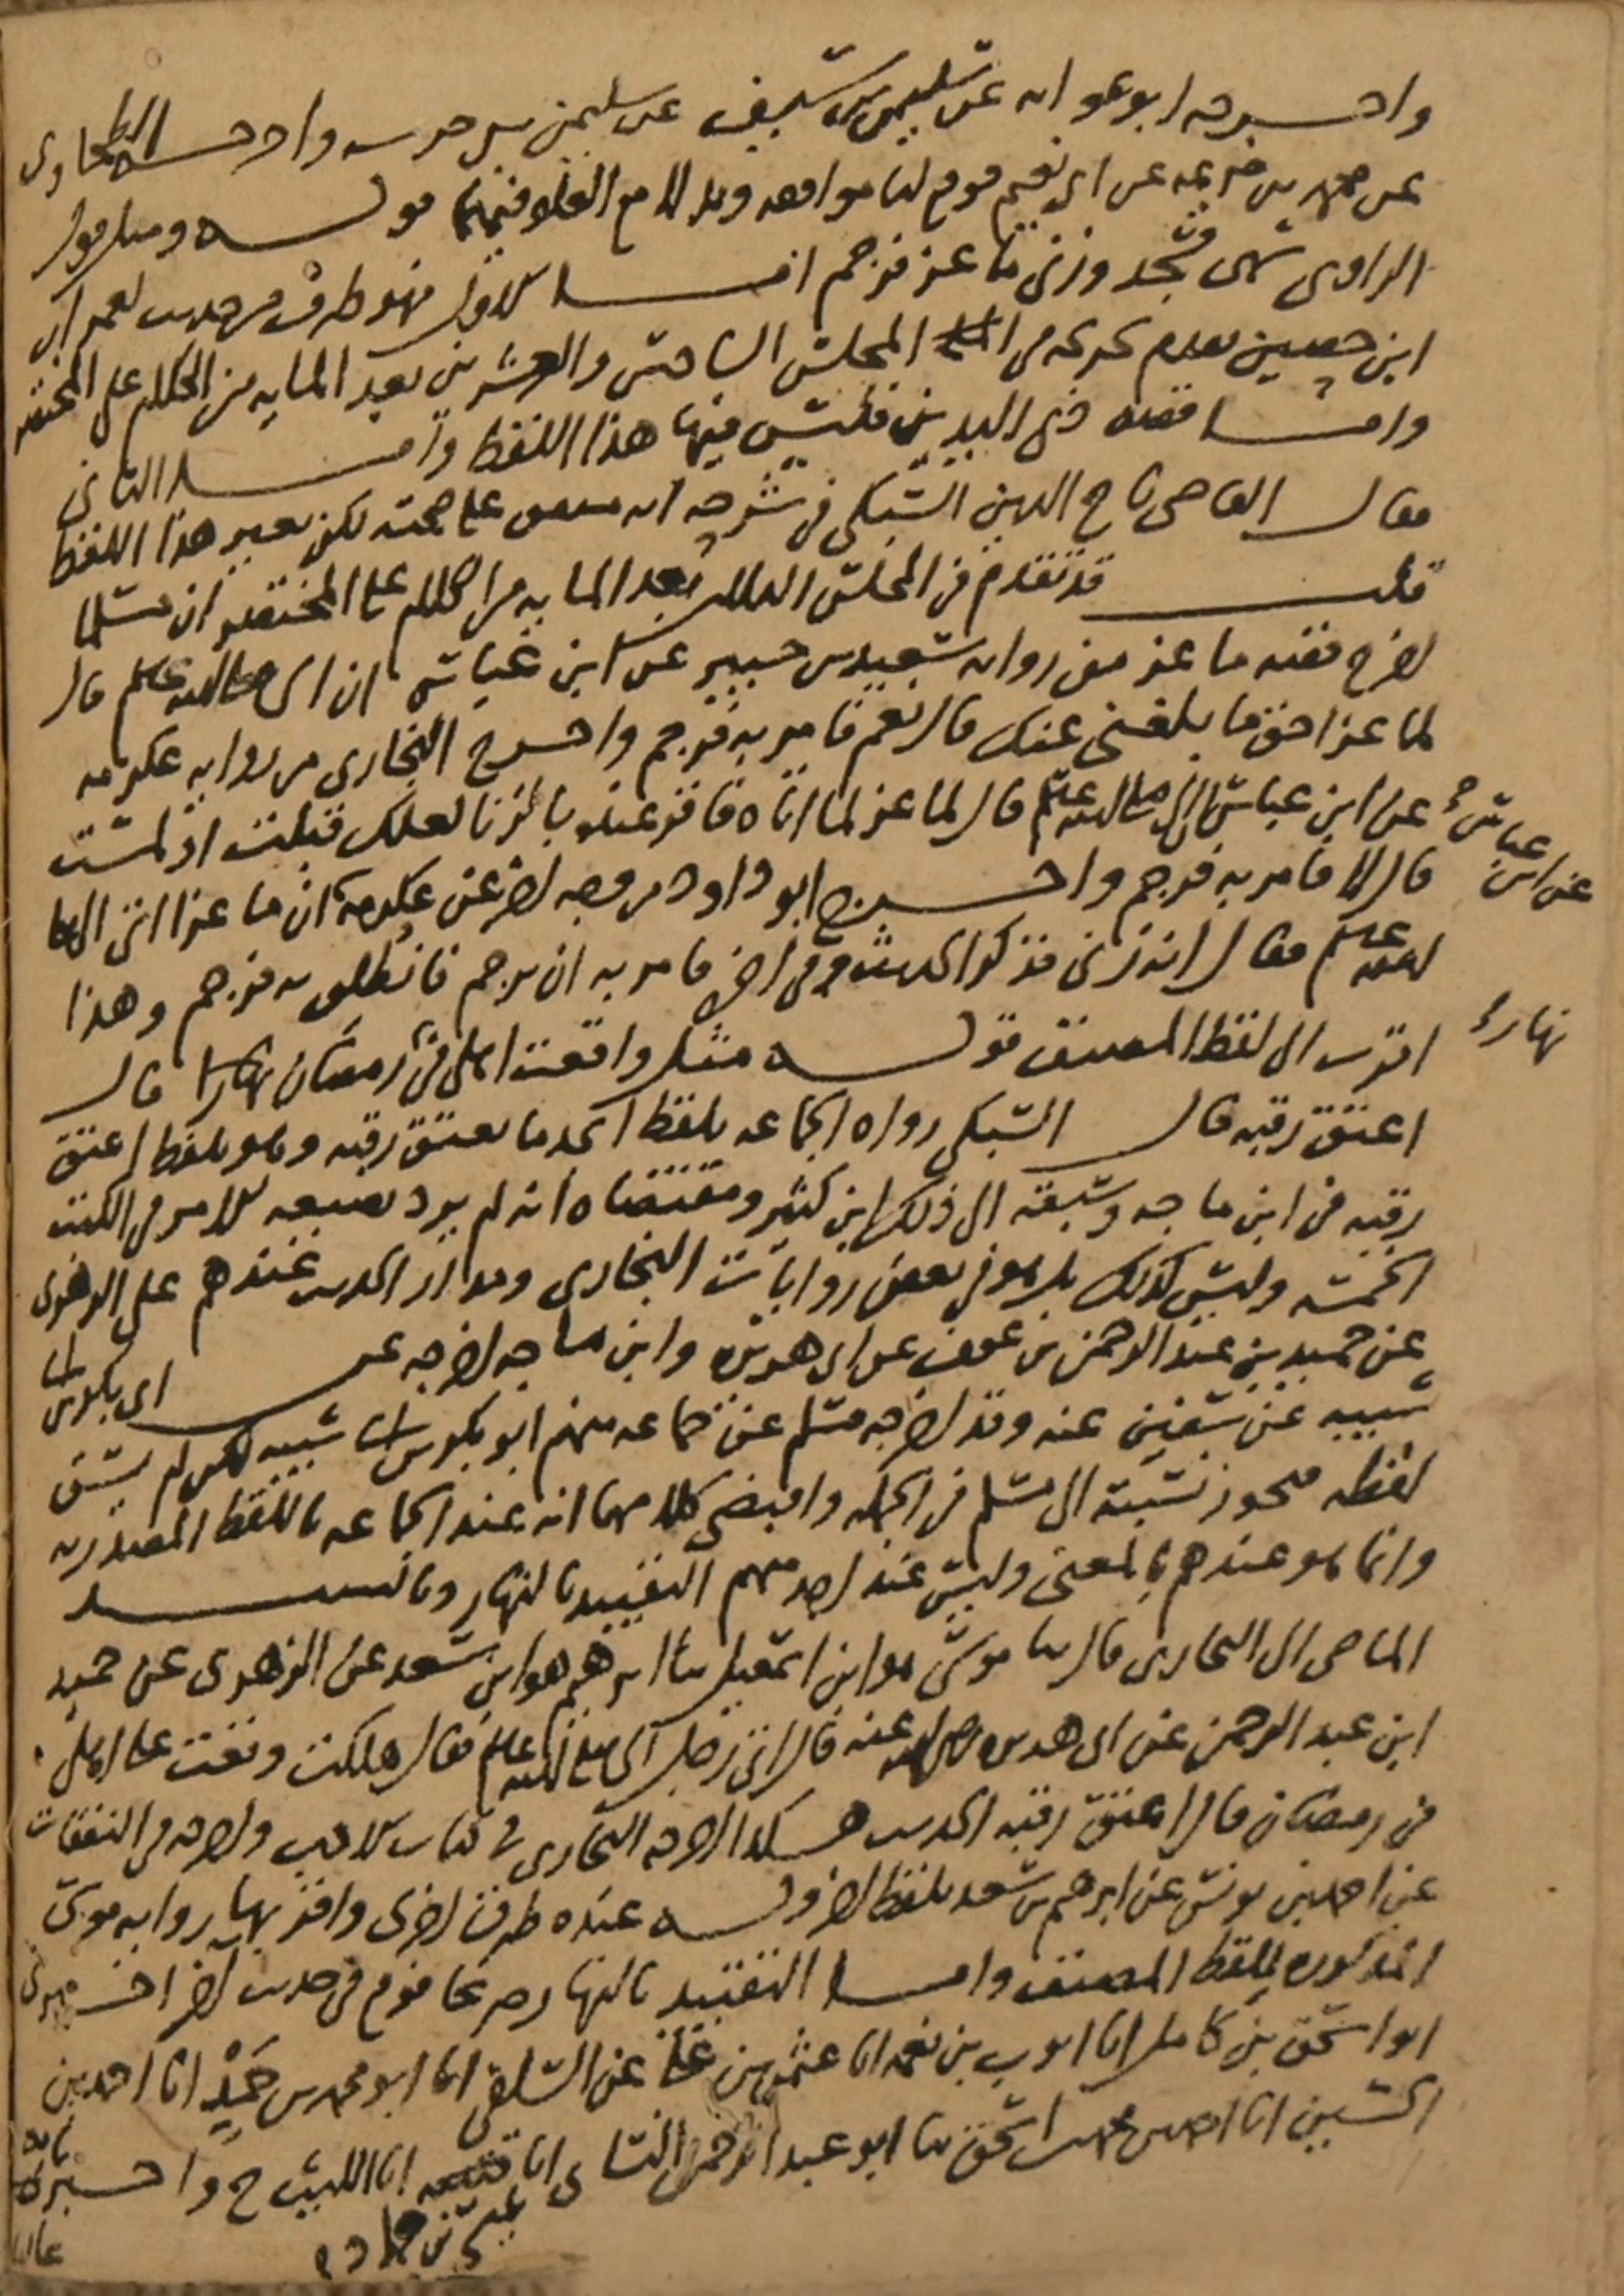 واخرجه ابو عوانه عن سليمن بن سيف عن سليمن بن حرب واخرجه الطحاوى
عن محمد بن خزيمه عن ابى نعيم فوقع لنا موافقه وبدلا مع العلو فيهما قوله ومثل قول
الراوى سهى فسجد وزنى ماعز فرجم اما الاول فهو طرف من حديث لعمران
ابن حصين تقدم تخريجه فى المجلس السادس والعشرين بعد المايه من الكلام على المختصر
واما قصه ذى اليدين فليس فيها هذا اللفظ واما الثانى
فقال القاضى تاج الدين السبكى فى شرحه انه متفق على صحته لكن بغير هذا اللفظ
قلت قد تقدم فى المجلس الثالث بعد المايه من الكلام على المختصر ان مسلما
اخرج قصه ماعز من روايه سعيد بن جبير عن ابن عباس ان النبى صلى الله عليه وسلم قال
لماعز احق ما بلغنى عنك قال نعم فامر به فرجم واخرج البخارى من روايه عكرمه
عن ابن عباس ان النبى صلى الله عليه وسلم قال لماعز لما اتاه فاقر عنده بالزنا لعلك قبلت او لمست
عن ابن عباس
قال لا فامر به فرجم واخرج ابو داود من وجه اخر عن عكرمة ان ماعزا اتى النبى صلى
الله عليه وسلم فقال انه زنى فذكر الحديث وفى اخره فامر به ان يرجم فانطلق به فرجم وهذا
اقرب الى لفظ المصنف قوله مثل واقعت اهلى فى رمضان نهارا قال
نهارا
اعتق رقبه قال السبكى رواه الجماعه بلفظ اتجد ما تعتق رقبه وهو بلفظ اعتق
رقبه فى ابن ماجه وسبقه الى ذلك ابن كثير ومقتضاه انه لم يرد بصيغه الامر فى الكتب
الخمسه وليس كذلك بل هو فى بعض روايات البخارى ومدار الحديث عندهم على الزهرى
عن حميد بن عبد الرحمن بن عوف عن ابى هريره وابن ماجه اخرجه عن ابى بكر بن ابى
شيبه عن سفين عنه وقد اخرجه مسلم عن جماعه منهم ابو بكر بن ابى شيبه لكن لم يسق
لفظه فيجوز نسبته الى مسلم فى الجمله واقتضى كلامهما انه عند الجماعه باللفظ المصدر به
وانما هو عندهم بالمعنى وليس عند احد منهم التقييد بالنهار وبالسند
الماضى الى البخارى قال ثنا موسى هو ابن اسمعيل ثنا ابرهيم هو ابن سعد عن الزهرى عن حميد
ابن عبد الرحمن عن ابى هريره رضى الله عنه قال اتى رجل النبى صلى الله عليه وسلم فقال هلكت وقعت على اهلى
فى رمضان قال اعتق رقبه الحديث هكذا اخرجه البخارى فى كتاب الادب واخرجه فى النفقات
عن احمد بن يونس عن ابرهيم بن سعد بلفظ اخر وله عنده طرق اخرى واقربها روايه موسى
المذكوره للفظ المصنف واما التقييد بالنهار صريحا فوقع فى حديث اخر اخبرنى
ابو اسحق بن كامل انا ايوب بن نعمه انا عثمن بن على عن السلفى انا ابو محمد بن حمد انا احمد بن
الحسين انا احمد بن محمد بن اسحق ثنا ابو عبد الرحمن النسائى انا قتيبه انا الليث ح واخبرنا
عيسى بن حماد
عاليا